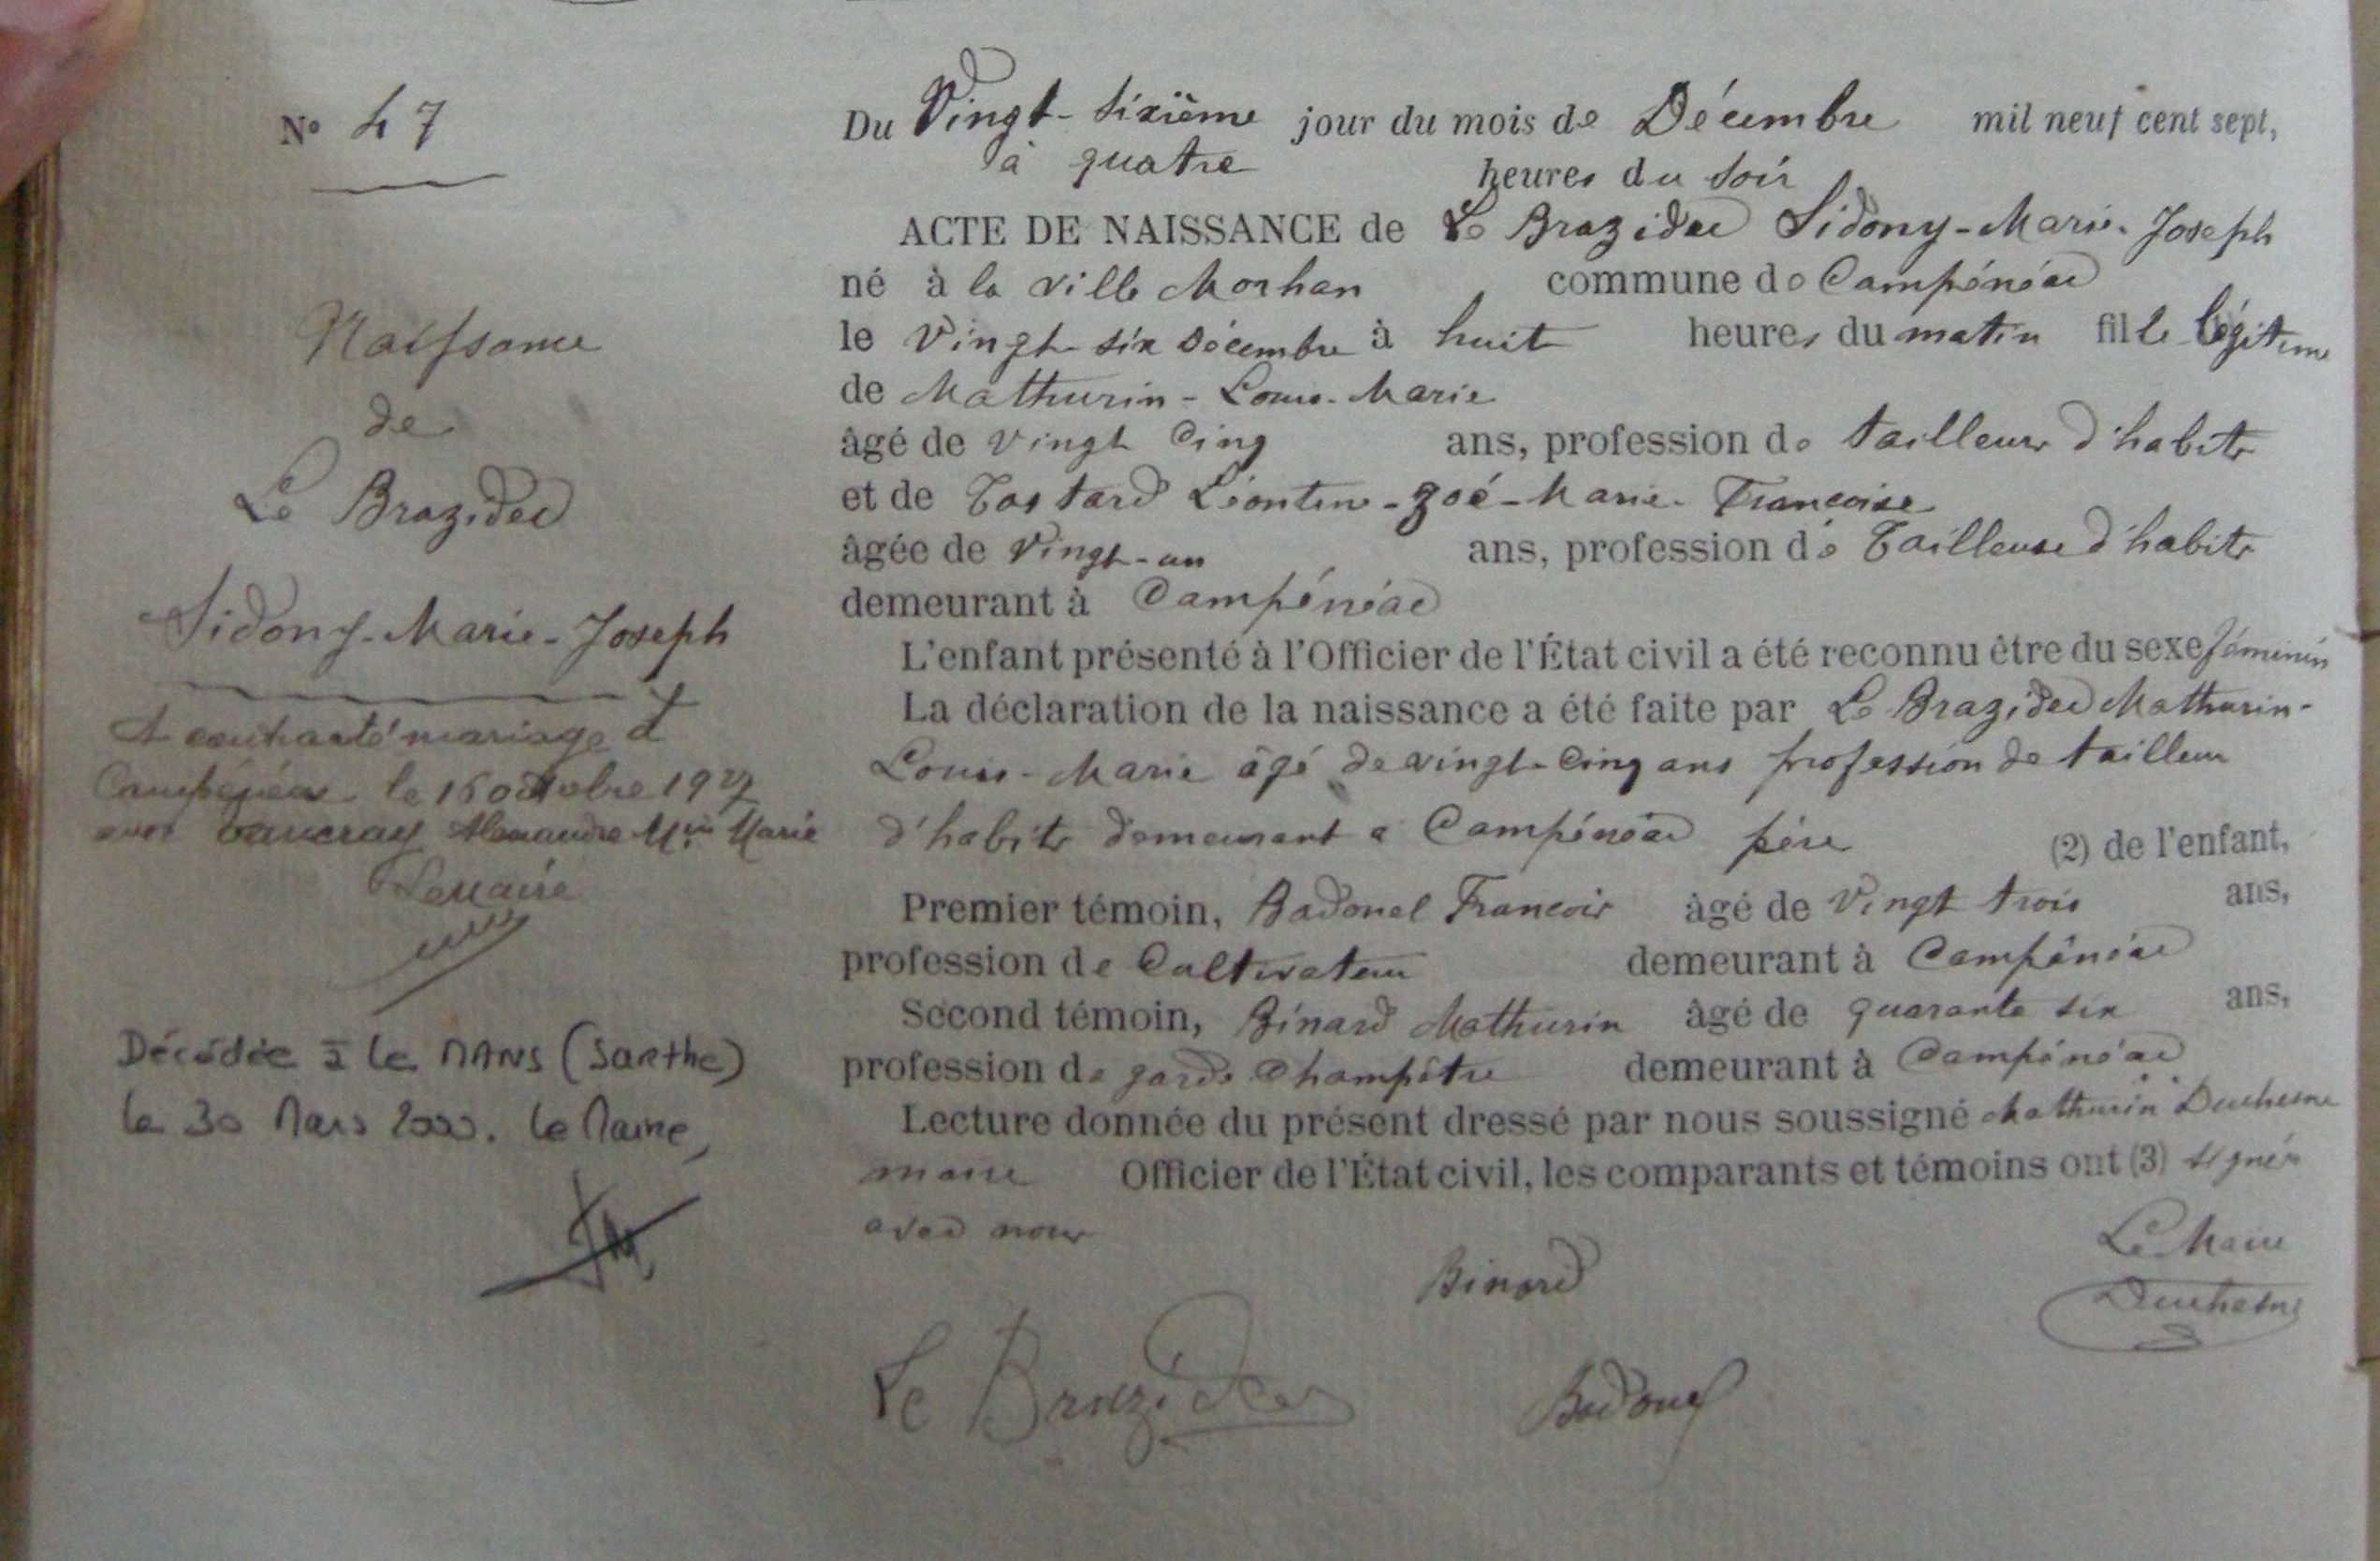 N° 47
Naissance
de
Le Brazidec
Sidony-Marie-Joseph
A contracté mariage à
Campénéac le 16 octobre 1927
avec Alexandre Marie
Le Maire
Décédée à Le MANS (Sarthe)
le 30 Mars 2000. Le Maire,
Du Vingt-sixième jour du mois de Décembre mil neuf cent sept,
à quatre heures du soir
ACTE DE NAISSANCE de Le Brazidec Sidony-Marie-Joseph
né à la ville Morhan commune de Campénéac
le vingt-six Décembre à huit heures du matin fille légitime
de Mathurin-Louis-Marie
âgé de vingt cinq ans, profession de tailleur d'habits
et de Tastard Léontine-Zoé-Marie-Françoise
âgée de vingt-un ans, profession de Tailleuse d'habits
demeurant à Campénéac
L'enfant présenté à l'Officier de l'État civil a été reconnu être du sexe féminin
La déclaration de la naissance a été faite par Le Brazidec Mathurin-
Louis-Marie âgé de vingt-cinq ans profession de tailleur
d'habits demeurant à Campénéac père (2) de l'enfant,
Premier témoin, Badouel François âgé de vingt trois ans,
profession de Cultivateur demeurant à Campénéac
Second témoin, Binard Mathurin âgé de quarante six ans,
profession de garde Champêtre demeurant à Campénéac
Lecture donnée du présent dressé par nous soussigné Mathurin Duchesne
maire Officier de l'État civil, les comparants et témoins ont (3) signés
avec nous
Le Maire
Binard
Duchesne
Le Brazidec
Badouel